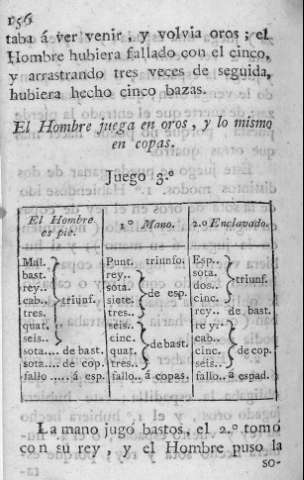 156
taba á ver venir, y volvia oros; el
Hombre hubiera fallado con el cinco,
y arrastrando tres veces de seguida,
hubiera hecho cinco bazas.
El Hombre juega en oros, y lo mismo
en copas.
Juego 3.º
El Hombre es pie.
Mal.
bast.
rey..
cab..
tres..
quat.
seis..
triunf.
sota.... de bast.
sota.... de cop.
fallo .... á esp.
1.º Mano.
Punt. triunfo.
rey..
sota.
siete.
tres..
de esp.
seis..
cinc.
quat.
tres..
de bast.
fallo.. á copas.
2.º Enclavado.
Esp..
sota.
dos..
cinc.
triunf.
rey.. de bast.
rey..
cab..
cinc.
seis..
de cop.
fallo.. á espad.
La mano jugó bastos, el 2.º tomó
con su rey, y el Hombre puso la
so-